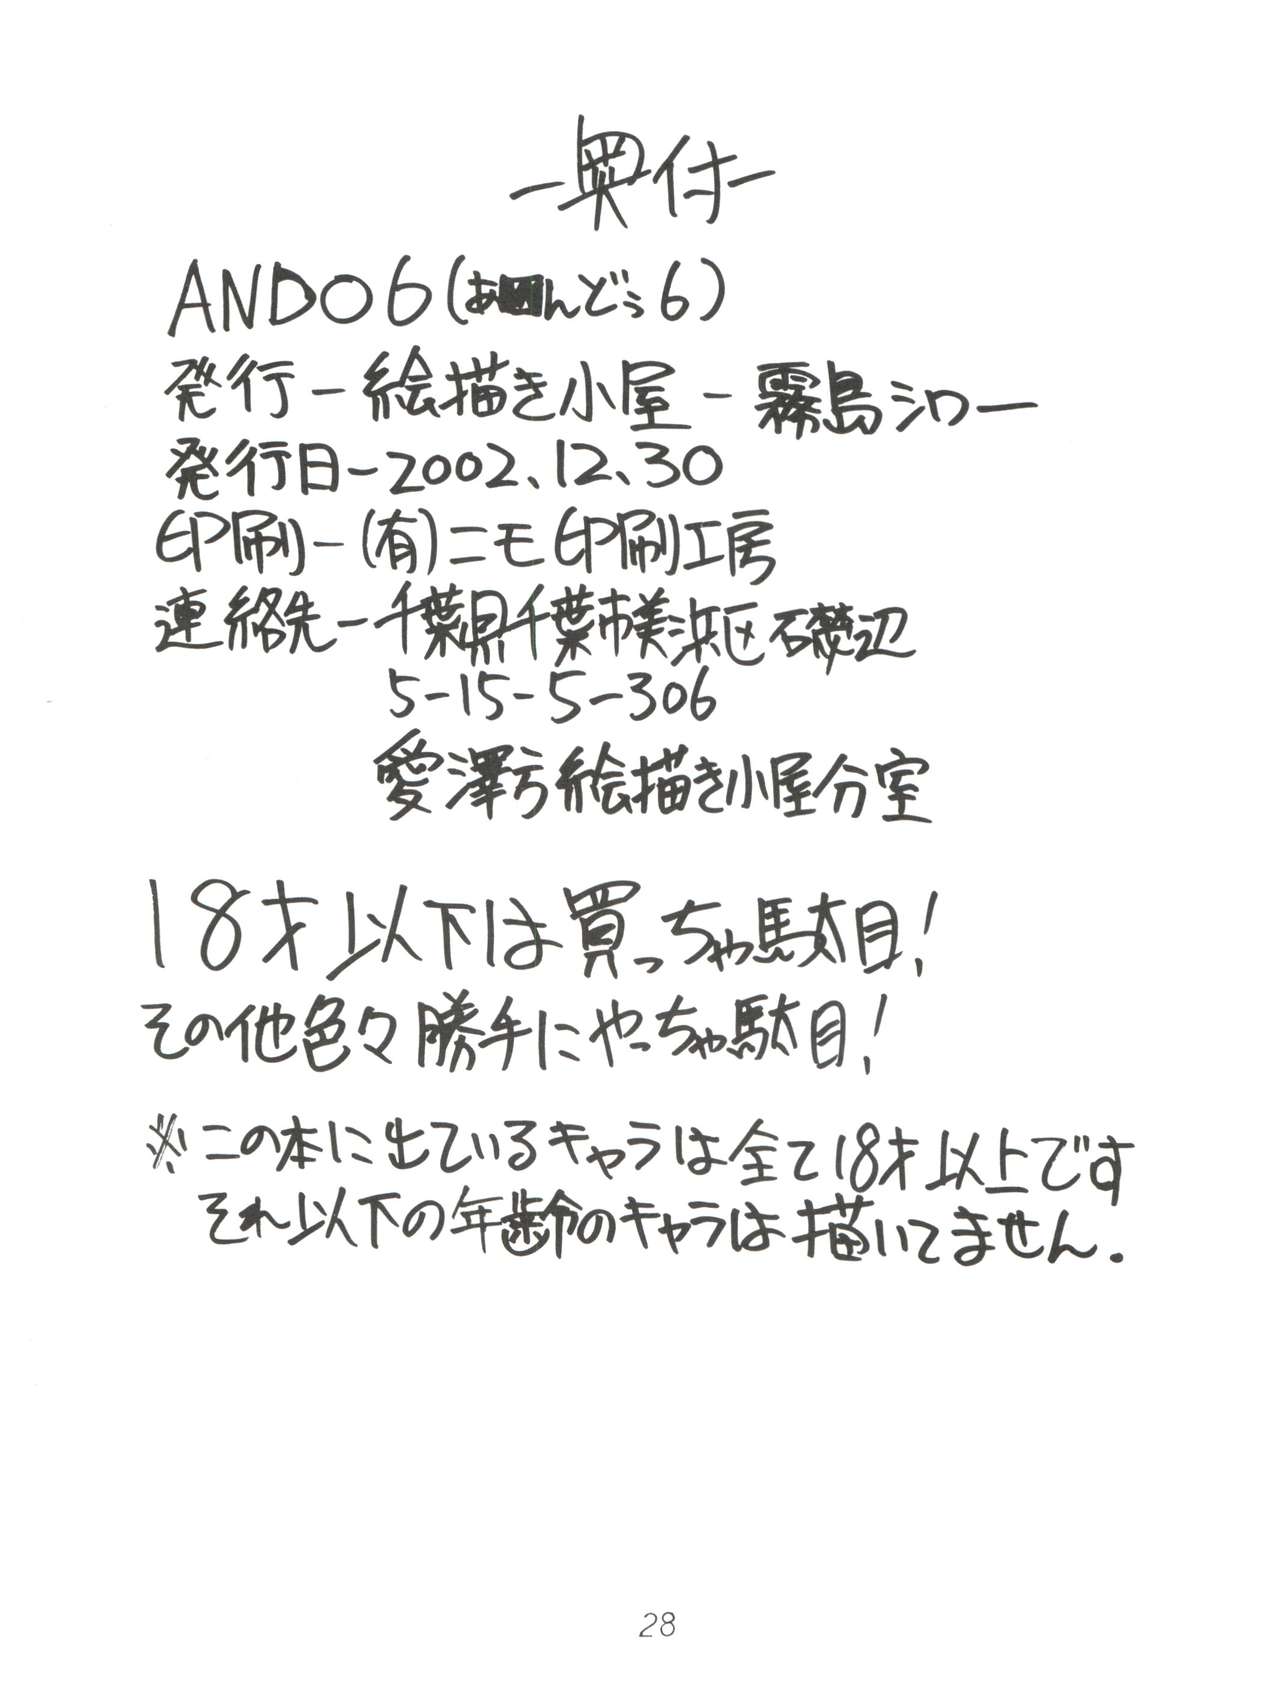 －奥付－
ANDO6(あんどぅ6)
発行－絵描き小屋－霧島シロー
発行日－2002、12、30
印刷－(有)ニモ印刷工房
連絡先－千葉県千葉市美浜区磯辺
5-15-5-306
愛澤方絵描き小屋分室
18才以下は買っちゃ駄目！
その他色々勝手にやっちゃ駄目！
※この本に出ているキャラは全て18才以上です
それ以下の年齢のキャラは描いてません.
28